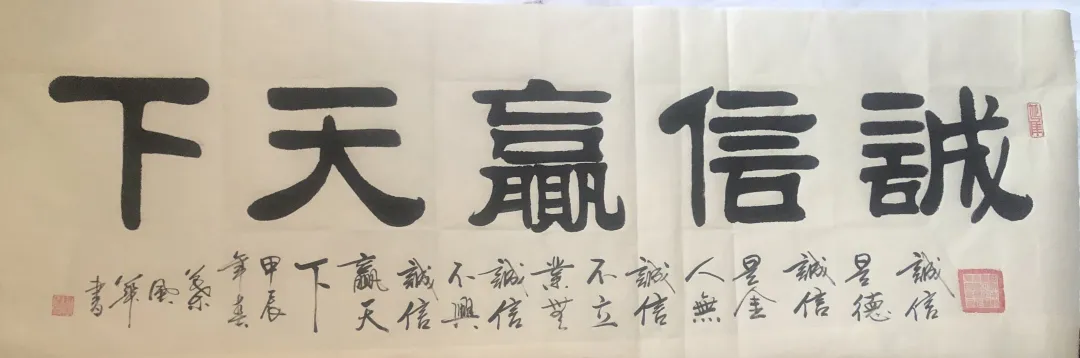 誠信贏天下
誠信
是德
誠信
是金
人無
誠信
不立
業無
誠信
不興
誠信
贏天
下
甲辰
年春
風
華
書